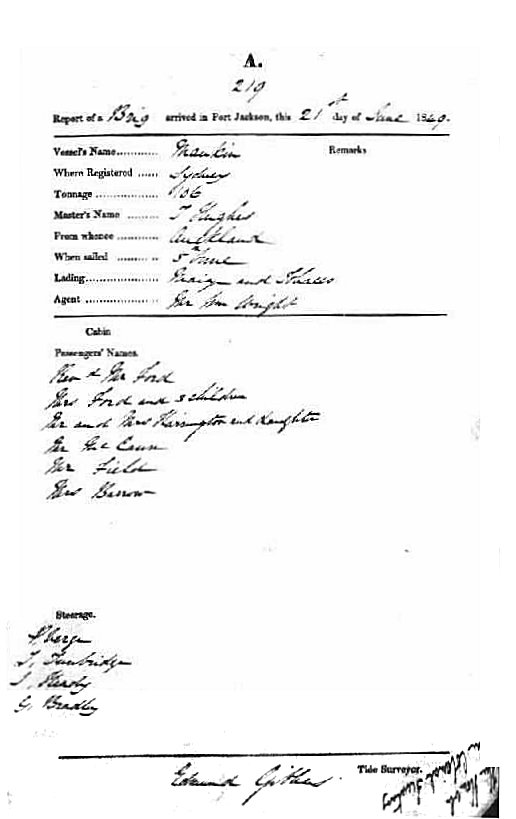 A.
219
Report of a Brig arrived in Port Jackson, this 21st day of June 1849.
Vessel's Name............ Maukin Remarks
Where Registered ...... Sydney
Tonnage .................. 106
Master's Name ......... T Hughes
From whence ............ Auckland
When sailed ............ 5 June
Lading..................... and
Agent ..................... Mr Wm Wright
Cabin
Passengers' Names.
Revd Mr Ford
Mrs Ford and 3 children
Mr and Mrs Harrington and daughter
Mr McCann
Mr Field
Mrs Barrow
Steerage.
T. Tunbridge
J.
G. Bradley
Edmund Tide Surveyor.